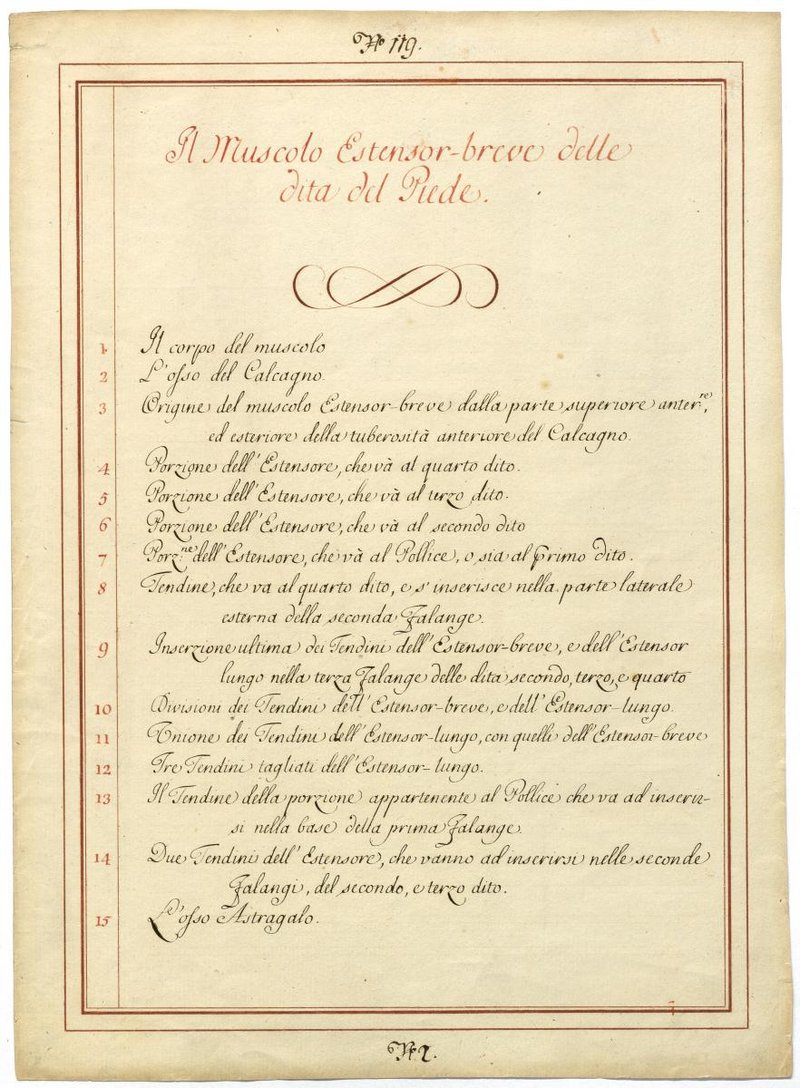 No 119.
Il Muscolo Estensor-breve delle
dita del Piede.
1 Il corpo del muscolo
2 L'osso del Calcagno
3 Origine del muscolo Estensor-breve dalla parte superiore anter.re,
ed esteriore della tuberosità anteriore del Calcagno.
4 Porzione dell'Estensore, che và al quarto dito.
5 Porzione dell'Estensore, che và al terzo dito.
6 Porzione dell'Estensore, che và al secondo dito
7 Porz.ne dell'Estensore, che và al Pollice, o sia al primo dito.
8 Tendine, che va al quarto dito, e s'inserisce nella parte laterale
esterna della seconda Falange.
9 Inserzione ultima dei Tendini dell'Estensor-breve, e dell'Estensor
lungo nella terza Falange delle dita secondo, terzo, e quarto
10 Divisioni dei Tendini dell'Estensor-breve, e dell'Estensor-lungo.
11 Unione dei Tendini dell'Estensor-lungo, con quelli dell'Estensor-breve
12 Tre Tendini tagliati dell'Estensor-lungo.
13 Il Tendine della porzione appartenente al Pollice che va ad inserir-
si nella base della prima Falange.
14 Due Tendini dell'Estensore, che vanno ad inserirsi nelle seconde
Falangi, del secondo, e terzo dito.
15 L'osso Astragalo.
No 2.